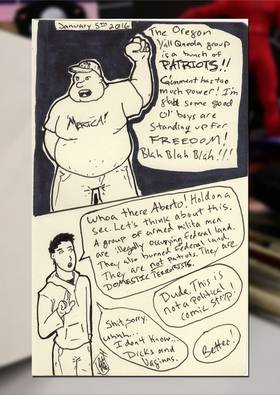 January 5th 2016
The Oregon
Y'all Qaeda group
is a bunch of
PATRIOTS!!
Government has too
much power! I'm
glad some good
Ol' boys are
Standing up for
FREEDOM!
Blah Blah Blah!!!
'MERICA!
Whoa there Alberto! Hold on a
sec. Let's think about this.
A group of armed milita men
are illegally occupying federal land.
They also burned federal land.
They are not patriots. They are
DOMESTIC TERRORISTS.
Dude. This is
not a political
comic strip!
Shit, sorry.
Uhhh...
I don't know...
Dicks and
Vaginas.
Better!